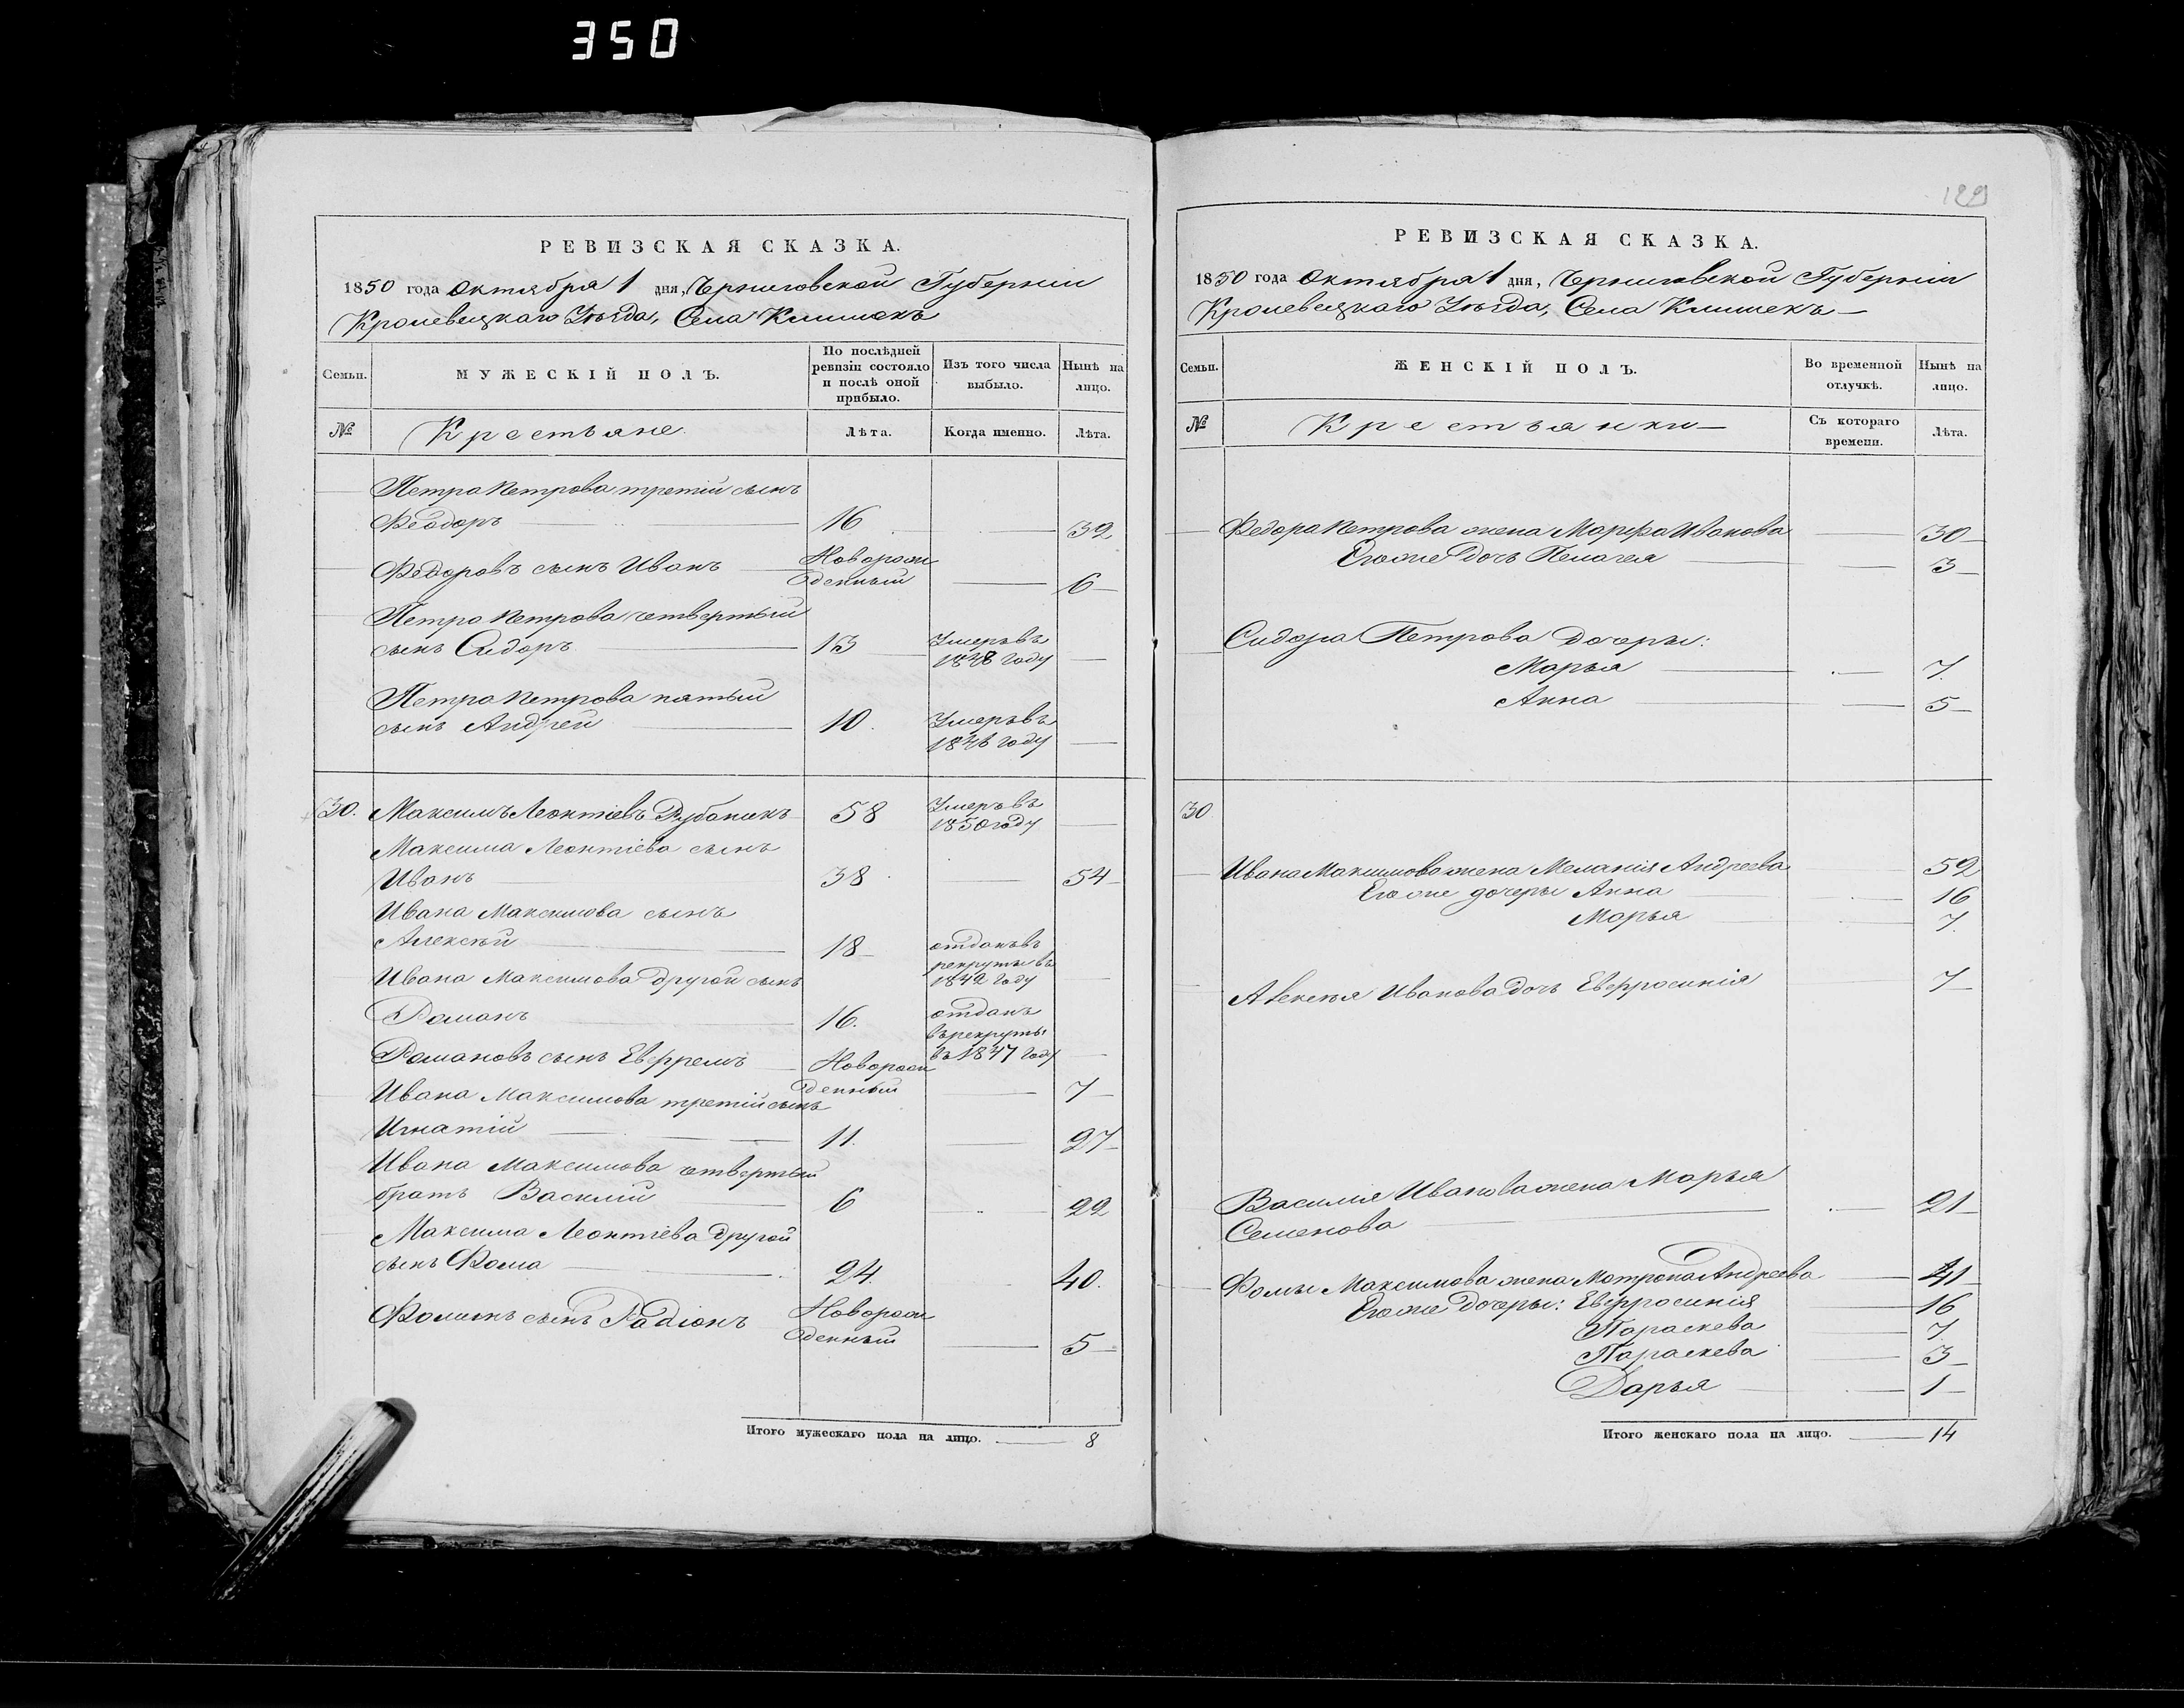 350
РЕВИЗСКАЯ СКАЗКА.
1850 года Октября 1 дня, Черниговской Губернии
Кролевецкаго Уѣзда, Села Клишекъ
Семьи.
МУЖЕСКІЙ ПОЛЪ.
По послѣдней ревизіи состояло и послѣ оной прибыло.
Изъ того числа выбыло.
Нынѣ на лицо.
№
Крестьяне
Лѣта.
Когда именно.
Лѣта.
Петра Петрова третій сынъ
Феодоръ 16 39
Федоровъ сынъ ИванъНоворож
денный 6
Петра Петрова четвертый
сынъ Сидоръ 13 Умеръ въ
1848 году
Петра Петрова пятый
сынъ Андрей 10 Умеръ въ
1848 году
30. Максимъ Леонтіевъ Рубанъ 58 Умеръ въ
1850 году
Максима Леонтіева сынъ
Иванъ 38 54
Ивана Максимова сынъ
Алексѣй 18 отданъ въ
рекруты въ
1842 году
Ивана Максимова другой сынъ
Романъ 16. отданъ
въ рекруты
въ 1847 году
Романовъ сынъ Евфремъ Новорож
денный 7
Ивана Максимова третій сынъ
Игнатій 11. 27
Ивана Максимова четвертый
братъ Василій 6 22
Максима Леонтіева другой
сынъ Фома 24. 40.
Фоминъ сынъ Радіонъ Новорож
денный 5
Итого мужескаго пола на лицо. 8
129
РЕВИЗСКАЯ СКАЗКА.
1850 года Октября 1 дня, Черниговской Губерніи
Кролевецкаго Уѣзда, Села Клишекъ
Семьи.
ЖЕНСКІЙ ПОЛЪ.
Во временной отлучкѣ.
Нынѣ на лицо.
№
Крестьянки
Съ котораго времени.
Лѣта.
Федора Петрова жена Марфа Иванова 30
Его же дочь Пелагея 3
Сидора Петрова дочери:
Марья 7
Анна 5
30
Ивана Максимова жена Меланія Андреева 52
Его же дочери Анна 16
Марья 7
Алексѣя Иванова дочь Евфросинія 7
Василія Иванова жена Марья
Семенова 21
Фомы Максимова жена Мотрона Андреева 41
Его же дочери: Евфросинія 16
Параскева 7
Параскева 3
Дарья 1
Итого женскаго пола на лицо. 14